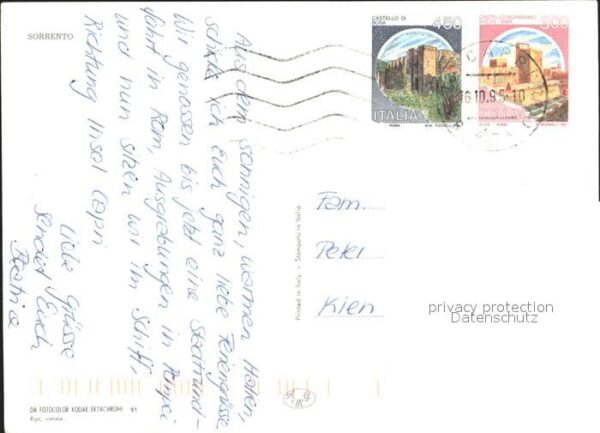 SORRENTO
Aus dem sonnigen, warmen Italien,
schicke ich Euch ganz liebe Feriengrüsse
Wir genossen bis jetzt eine Stadtrund-
fahrt in Rom, Ausgrabungen in Pompei
und nun sitzen wir im Schiff,
Richtung Insel Capri
Liebe Grüsse
sendet Euch
CASTELLO DI
BOSA
450
ITALIA
ROMA
CASTELLO NORMANNO
ITALIA
ROMA
CAPRI
Fam.
Peter
Kien
Printed in Italy - Stampato in Italia
privacy protection
Datenschutz
DA FOTOCOLOR KODAK EKTACHROME 91
Ripr. vietata